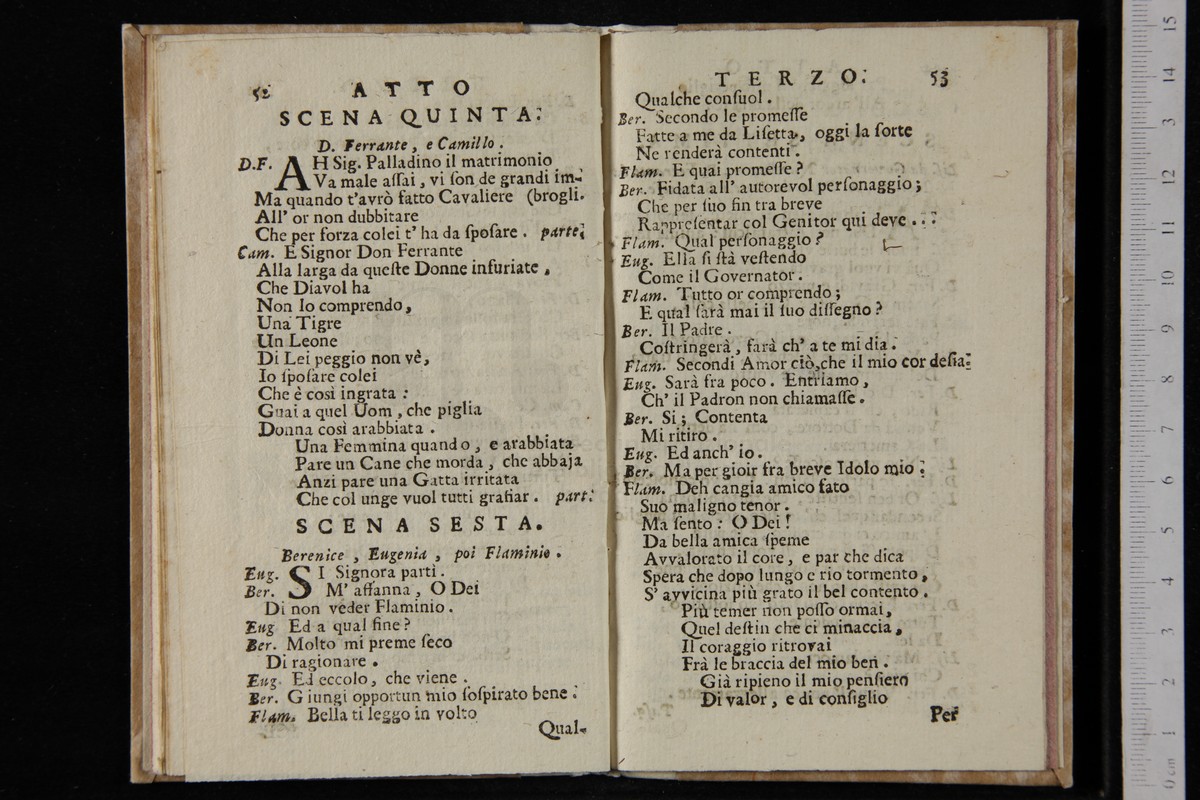 52 ATTO
SCENA QUINTA.
D. Ferrante, e Camillo.
D.F. AH Sig. Palladino il matrimonio
Va male aſſai, vi ſon de grandi im-
Ma quando t'avrò fatto Cavaliere (brogli.
All' or non dubbitare
Che per forza colei t' ha da ſpoſare. parte.
Cam. E Signor Don Ferrante
Alla larga da queſte Donne infuriate,
Che Diavol ha
Non Io comprendo,
Una Tigre
Un Leone
Di Lei peggio non vè,
Io ſpoſare colei
Che è così ingrata:
Guai a quel Uom, che piglia
Donna così arabbiata.
Una Femmina quando, e arabbiata
Pare un Cane che morda, che abbaja
Anzi pare una Gatta irritata
Che col unge vuol tutti grafiar. part.
SCENA SESTA.
Berenice, Eugenia, poi Flaminio.
Eug. SI Signora parti.
Ber. M' affanna, O Dei
Di non veder Flaminio.
Eug Ed a qual fine?
Ber. Molto mi preme ſeco
Di ragionare.
Eug. Ed eccolo, che viene.
Ber. Giungi opportun mio ſoſpirato bene.
Flam. Bella ti leggo in volto
Qual-
TERZO. 53
Qualche conſuol.
Ber. Secondo le promeſſe
Fatte a me da Liſetta, oggi la ſorte
Ne renderà contenti.
Flam. E quai promeſſe?
Ber. Fidata all' autorevol perſonaggio;
Che per ſuo fin tra breve
Rappreſentar col Genitor qui deve...
Flam. Qual perſonaggio?
Eug. Ella ſi ſtà veſtendo
Come il Governator.
Flam. Tutto or comprendo;
E qual ſarà mai il ſuo diſſegno?
Ber. Il Padre.
Coſtringerà, farà ch' a te mi dia.
Flam. Secondi Amor ciò, che il mio cor deſia.
Eug. Sarà fra poco. Entriamo,
Ch' il Padron non chiamaſſe.
Ber. Si; Contenta
Mi ritiro.
Eug. Ed anch' io.
Ber. Ma per gioir fra breve Idolo mio.
Flam. Deh cangia amico fato
Suo maligno tenor.
Ma ſento: O Dei!
Da bella amica ſpeme
Avvalorato il core, e par che dica
Spera che dopo lungo e rio tormento,
S' avvicina più grato il bel contento.
Più temer non poſſo ormai,
Quel deſtin che ci minaccia,
Il coraggio ritrovai
Frà le braccia del mio ben.
Già ripieno il mio penſiero
Di valor, e di conſiglio
Per
15
14
3
12
11
10
9
8
7
6
5
4
3
2
1
0 cm